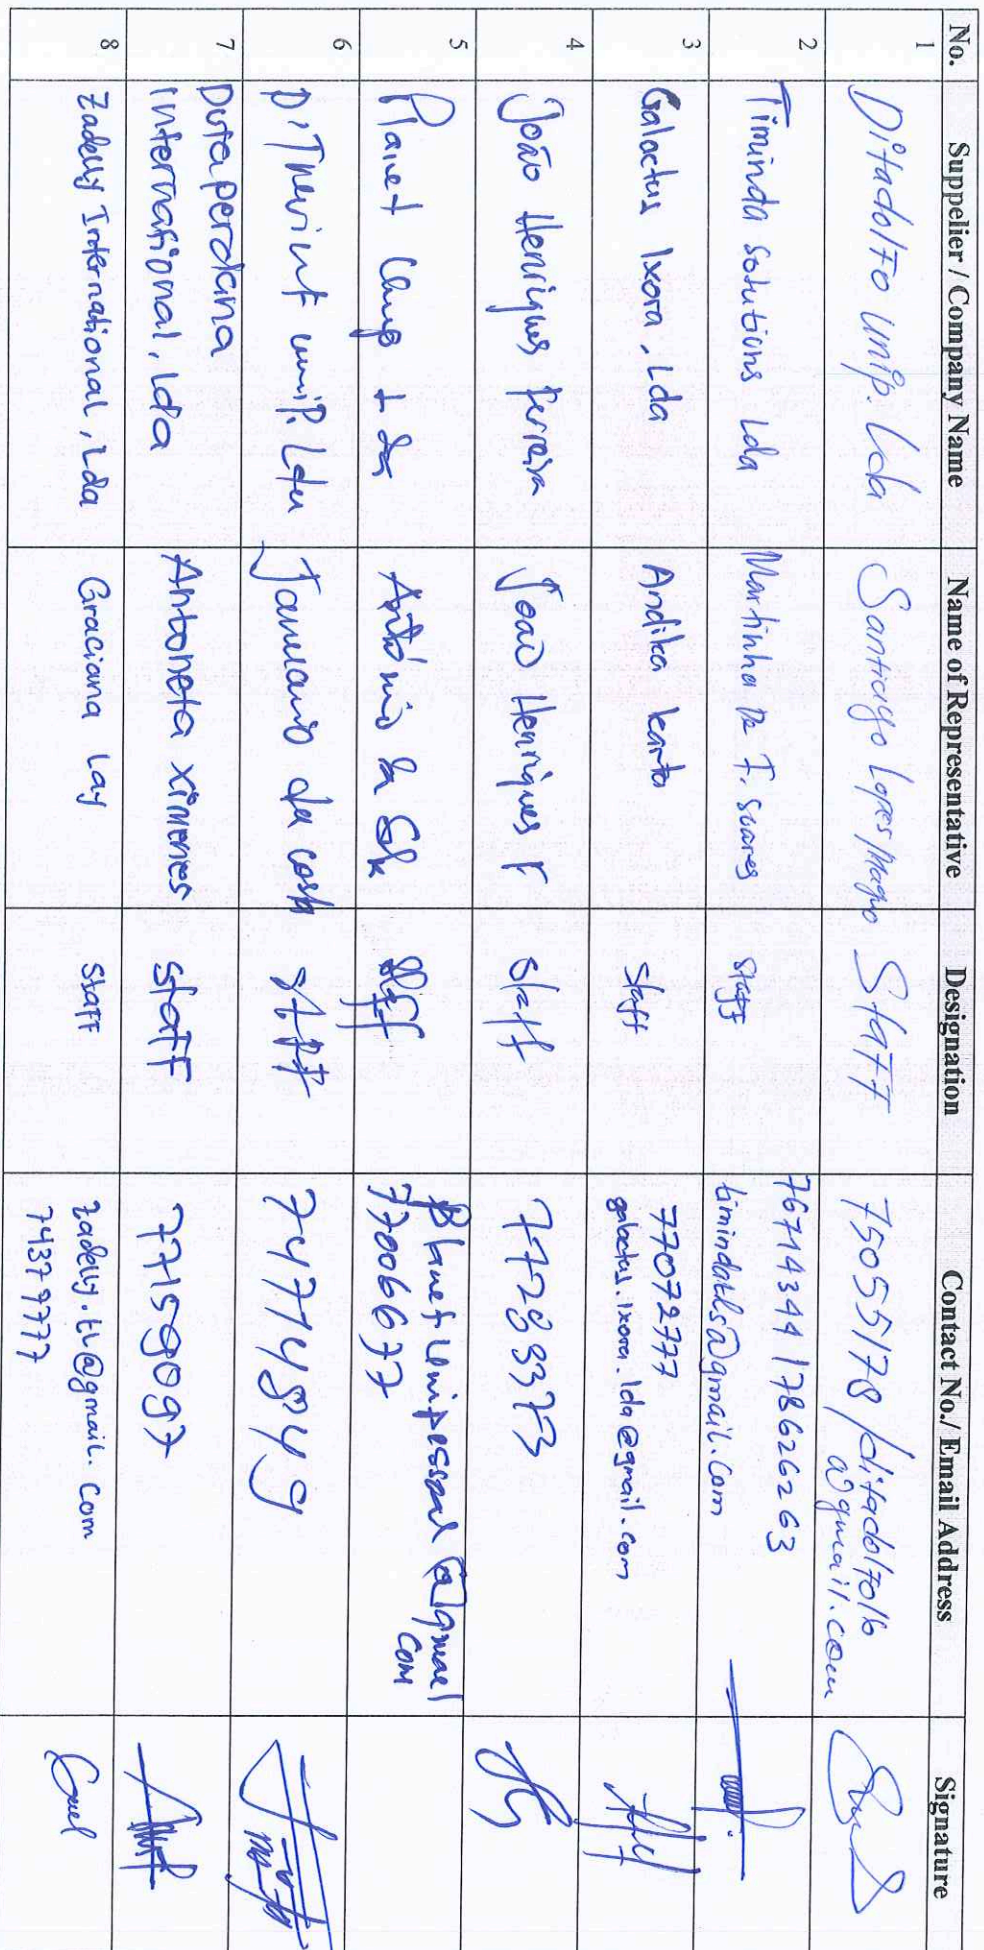 No. Suppelier / Company Name Name of Representative Designation Contact No./ Email Address Signature
1 Ditadolfo unip. Lda Santiago Lopes Magno Staff 75055178 /ditadolfo16
@gmail.com
2 Timinda Solutions Lda Martinha De F. Soares Staff 76714344 / 78626263
timindatls@gmail.com
3 Galactus Ixora, Lda Andika Staff 77072777
galactus.ixora.lda@gmail.com
4 João Henriques Ferreira João Henriques F staff 77283373
5 Planet António da staff Planetunipessoal@gmael
com
77006677
6 unip. Lda Januario da costa staff 74774849
7 Dutaperdana
International, Lda Antoneta Ximenes staff 77159097
8 Zadely International, Lda Graciana Lay staff zadely.tl@gmail.com
74379777